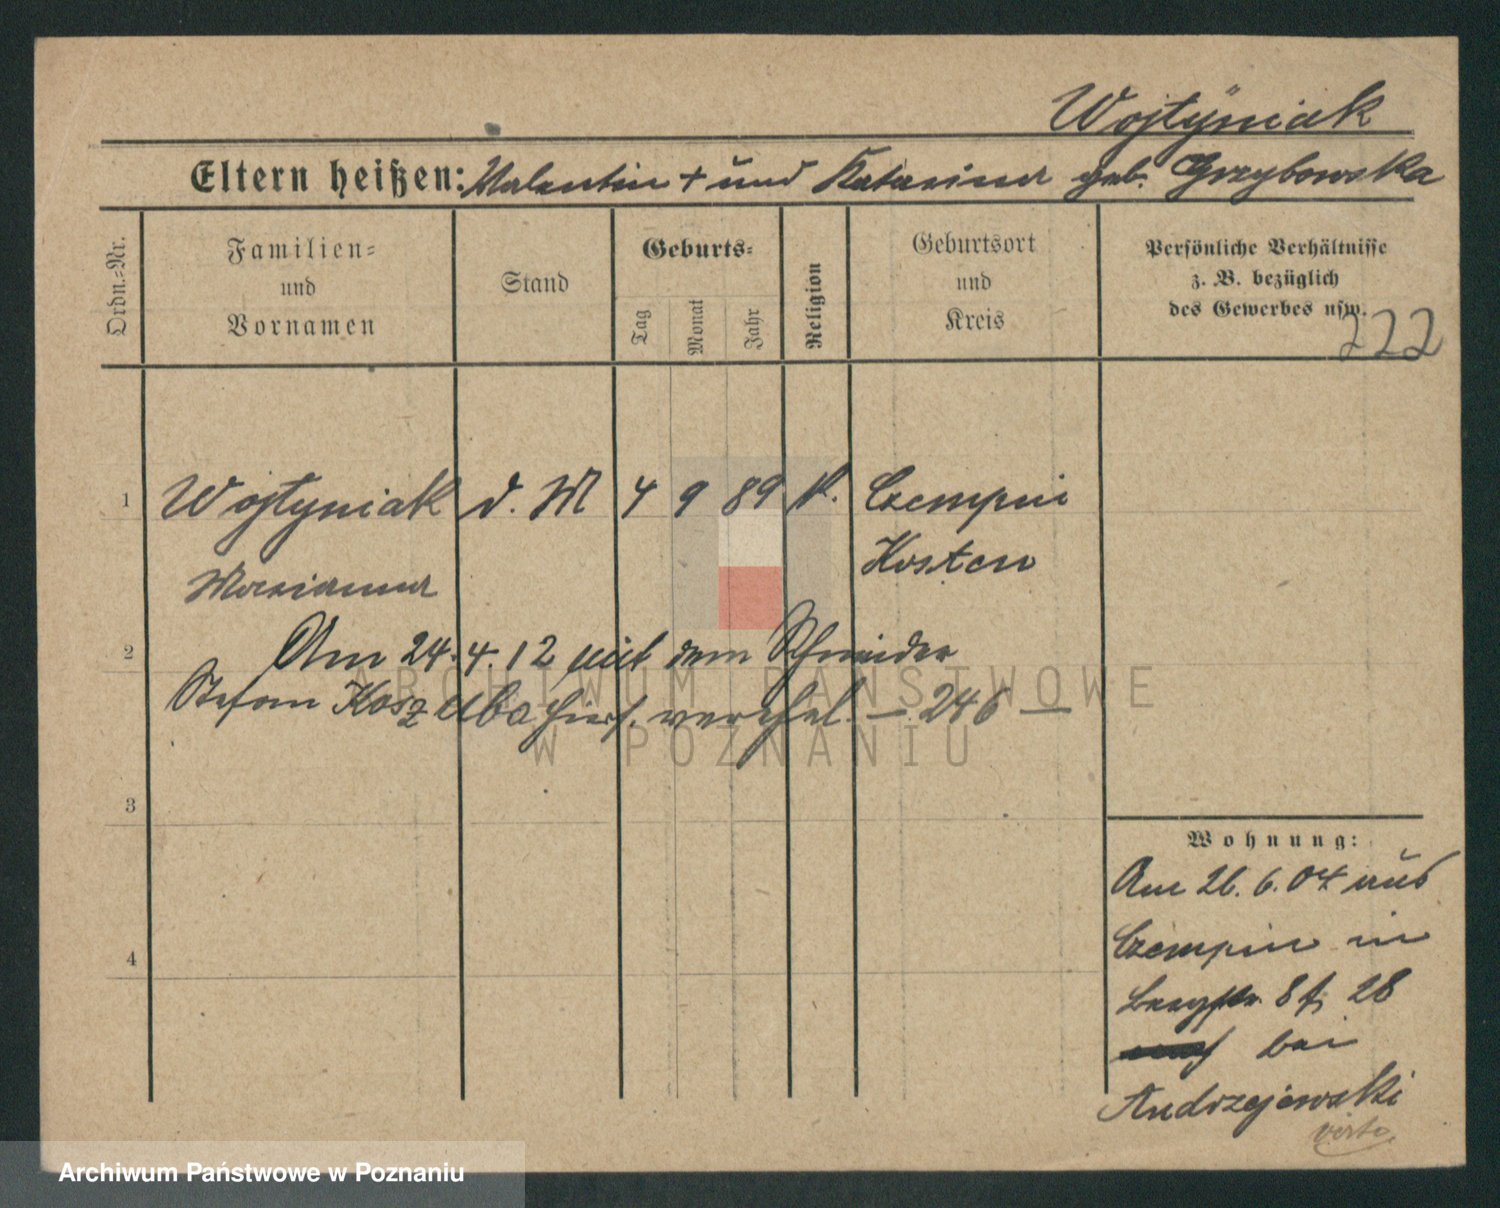 Wojtyniak
Eltern heißen: Valentin + und Katarina geb. Grzybowska
Ordn.=Nr.
Familien=
und
Vornamen
Stand
Geburts=
Tag
Monat
Jahr
Religion
Geburtsort
und
Kreis
Persönliche Verhältnisse
z. B. bezüglich
des Gewerbes usw.
222
1 Wojtyniak d. M 4 9 89 k. Czempin
Kosten
Marianna
2 Am 24.4.12 mit dem Schneider
Stefan hier verehel. — 246 —
3
4
Wohnung:
Am 26.6.04 aus
Czempin in
Bergstr. 28
bei
Andrzejewski
verte
ARCHIWUM PAŃSTWOWE
W POZNANIU
Archiwum Państwowe w Poznaniu